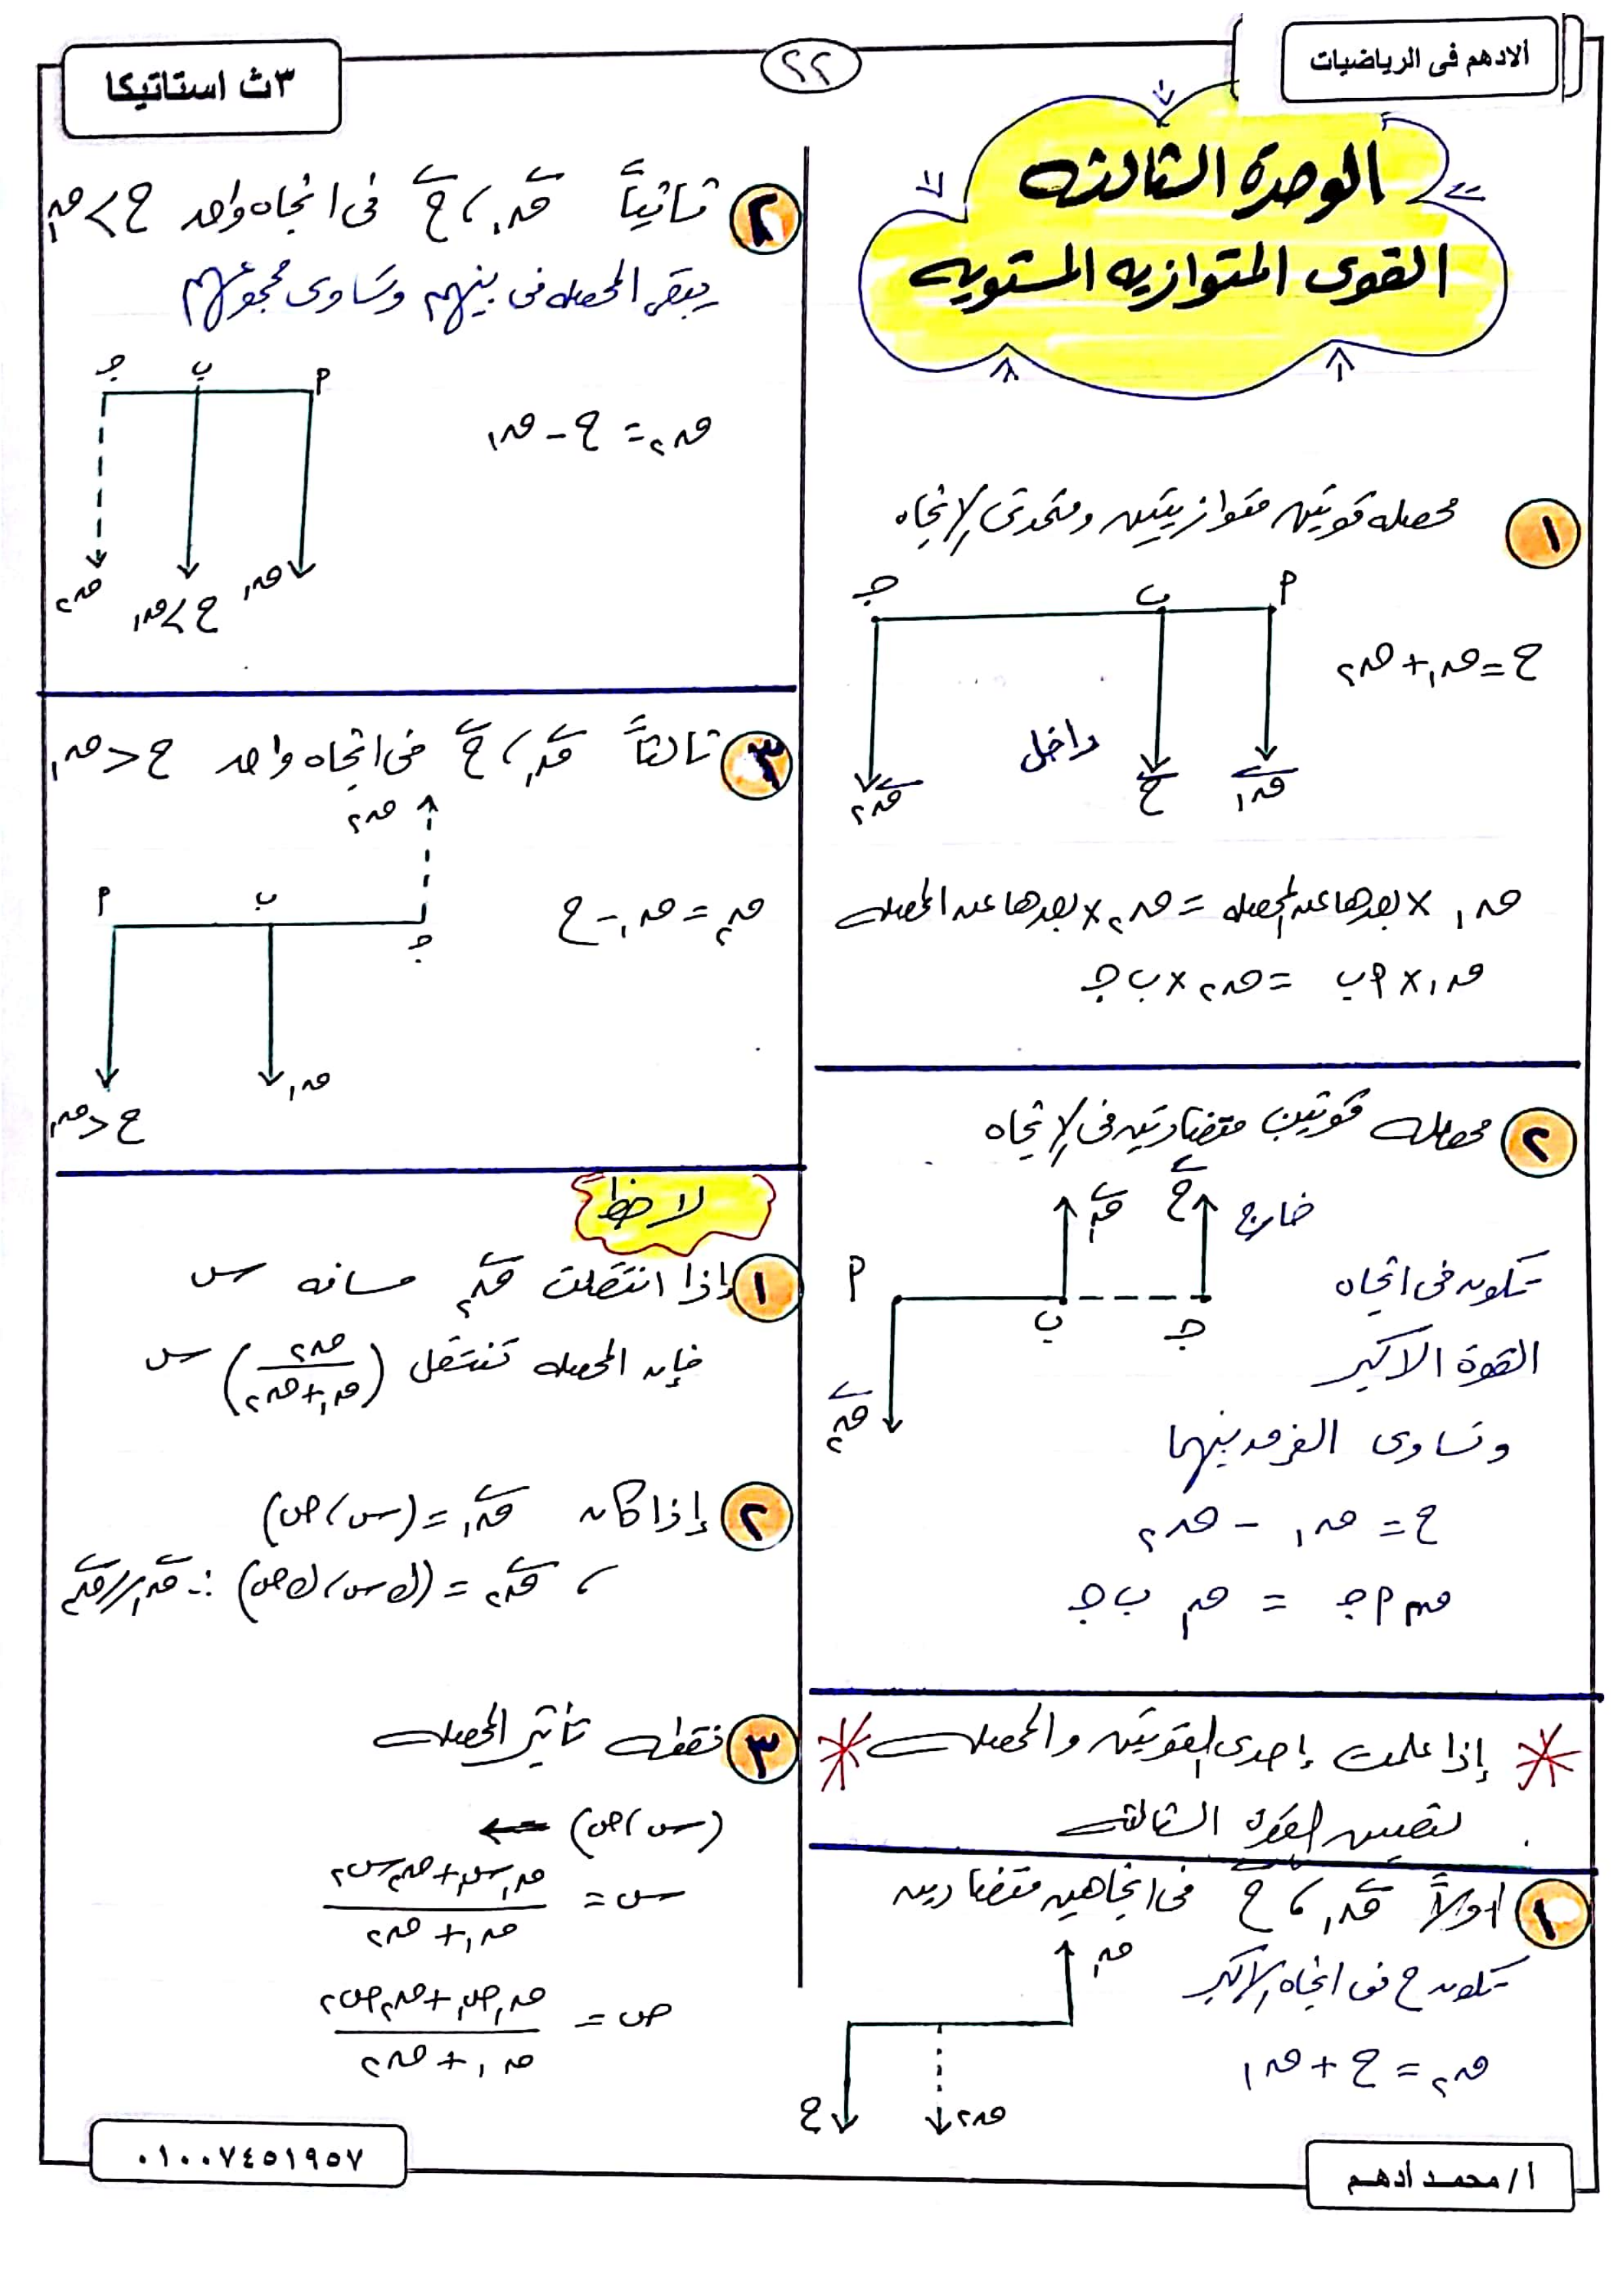 الادهم فى الرياضيات
٢٢
٣ث استاتيكا
الوحدة الثالثه
القوى المتوازيه المستويه
١ محصله قوتين متوازيتين ومتحدتى الإتجاه
ح = ق١ + ق٢
أ ب جـ
داخل
ق١ ح ق٢
ق١ × بعدها عن المحصله = ق٢ × بعدها عن المحصله
ق١ × أب = ق٢ × ب جـ
٢ محصله قوتين متضادتين فى الإتجاه
خارج
ح ق١
تكون فى اتجاه
أ ب جـ
القوة الاكبر
ق٢
وتساوى الفرق بينهما
ح = ق١ - ق٢
ق٢ أجـ = ق١ ب جـ
* إذا علمت إحدى القوتين والمحصله *
لتعيين القوة الثالثه
١ اولاً ق١ ، ح فى اتجاهين متضادين
تكون ح فى اتجاه الاكبر
ق١
ق٢ = ح + ق١
ح ق٢
٢ ثانياً ق١ ، ح فى اتجاه واحد ح > ق١
يبقى المحصله فى بينهم وتساوى مجموعهم
أ ب جـ
ق٢ = ح - ق١
ق١ ح > ق١ ق٢
٣ ثالثاً ق١ ، ح فى اتجاه واحد ح < ق١
ق٢
أ ب جـ
ق٢ = ق١ - ح
ق١
ح < ق١
لاحظ
١ إذا انتقلت ق٢ مسافه س
فإن المحصله تنتقل (ق٢ / ق١ + ق٢) س
٢ إذا كان ق١ = (س ، ص)
، ق٢ = (ك س ، ك ص) ∴ ق١ // ق٢
٣ نقطه تأثير المحصله
(س ، ص) ←
س = ق١ س١ + ق٢ س٢ / ق١ + ق٢
ص = ق١ ص١ + ق٢ ص٢ / ق١ + ق٢
أ / محمد أدهم
٠١٠٠٧٤٥١٩٥٧